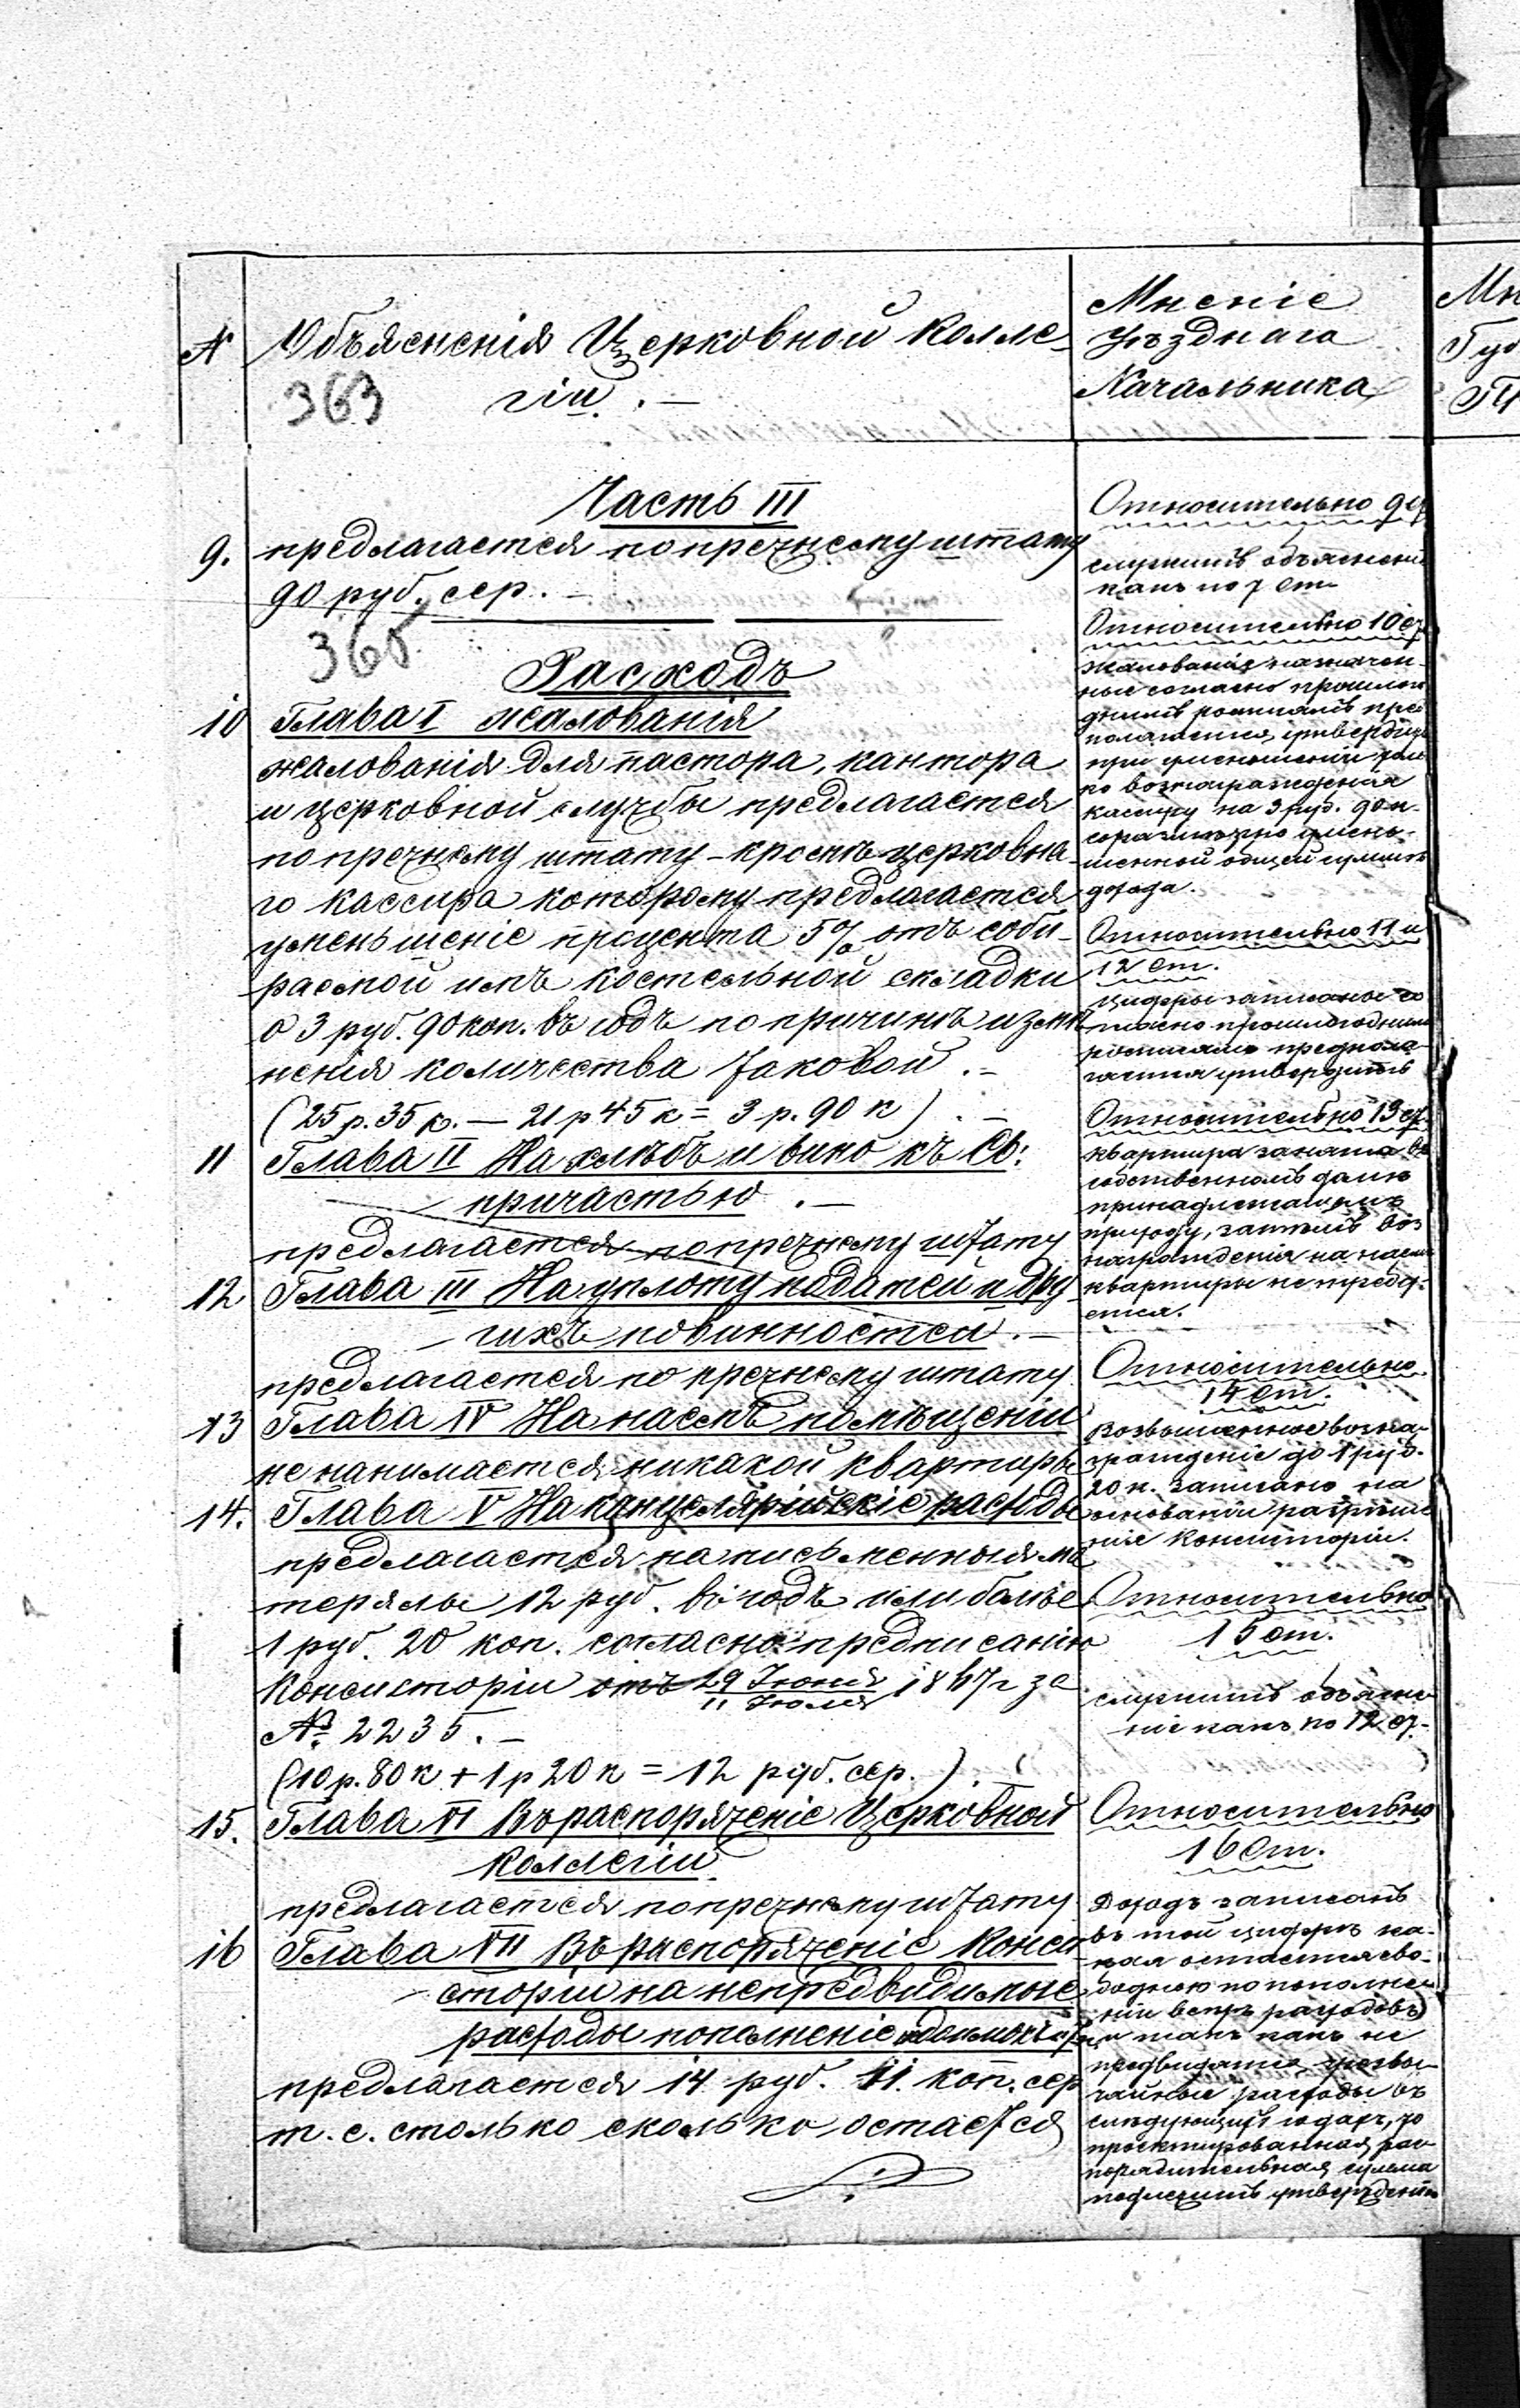 №
Объясненія Церковной Колле-
гіи. —
363
Мненіе
Уѣзднаго
Начальника
Мн
Губ
Часть III
9. предлагается попрежнему штату
90 руб. сер. —
365
Расходъ
10 Глава I жалованія
жалованія для пастора, кантора
и церковной службы предлагается
попрежнему штату – кромѣ церковна-
го кассира которому предлагается
уменьшеніе процента 5% отъ соби-
раемой имъ костельной складки
о 3 руб. 90 коп. въ годъ по причинѣ измѣ-
ненія количества таковой. –
(25 р. 35 к. — 21 р 45 к = 3 р. 90 к) . —
11 Глава II На хлѣбъ и вино къ Св:
причастью . —
предлагается попрежнему штату
12 Глава III На уплоту податей и дру-
гихъ повинностей. —
предлагается по прежнему штату
13 Глава IV На наемъ помѣщеніи
не нанимается никакой квартиры
14. Глава V На канцелярійскіе расходы
предлагается на письменныя ма
терялы 12 руб. въ годъ или болѣе
1 руб. 20 коп. согласно предписанію
Консисторіи отъ 29 Іюня 1867 г за
11 Іюля
№ 2235. –
(10 р. 80 к + 1 р 20 к = 12 руб. сер.) . –
15. Глава VI Въ распоряженіе Церковной
Коллегіи
предлагается попрежнему штату
16 Глава VII Въ распоряженіе Конси
сторіи на непредвидимые
расходы пополненіе
предлагается 14 руб. 11. коп. сер
т. е. столько сколько остается
Относительно 9 ст
служитъ объясненіе
какъ по 7 ст
Относительно 10 ст.
жалованія назначен-
ные согласно прошлого
днимъ росписямъ пред
полагается утвердить
при уменьшеніи
по вознагражденія
кассиру на 3 руб. 90 к.
соразмѣрно умень-
шенной общей суммѣ
дохода.
Относительно 11 и
12 ст.
цифры записаные со
гласно прошлогоднимъ
росписямъ предпола-
гается утвердить
Относительно 13 ст.
квартира занята въ
собственномъ домѣ
принадлежащемъ
приходу, затѣмъ воз
награжденія на наемъ
квартиры не требу-
ется.
Относительно
14 ст.
Возвышенное возна-
гражденіе до 1 руб.
20 к. записано на
основаніи разрѣше
ніе Консисторіи.
Относительно
15 ст.
служитъ объясне
ніе какъ по 12 ст.
Относительно
16 ст.
Доходъ записанъ
въ той цифрѣ ка-
кая остается сво-
бодною по пополне
ніи всѣхъ расходовъ
и такъ какъ не
предвидятся чрезвы-
чайные расходы въ
слѣдующихъ годахъ, то
проектированная рас
порядительная сумма
подлежитъ утвержденію